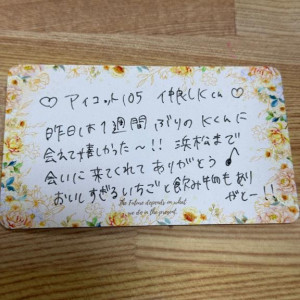 ♡ アイコット105 仲良しKくん ♡
昨日は1週間ぶりのKくんに
会えて嬉しかった〜!! 浜松まで
会いに来てくれてありがとう♪
おいしすぎるいちごと飲み物もあり
がとー!!
The Future depends on what
we do in the present.